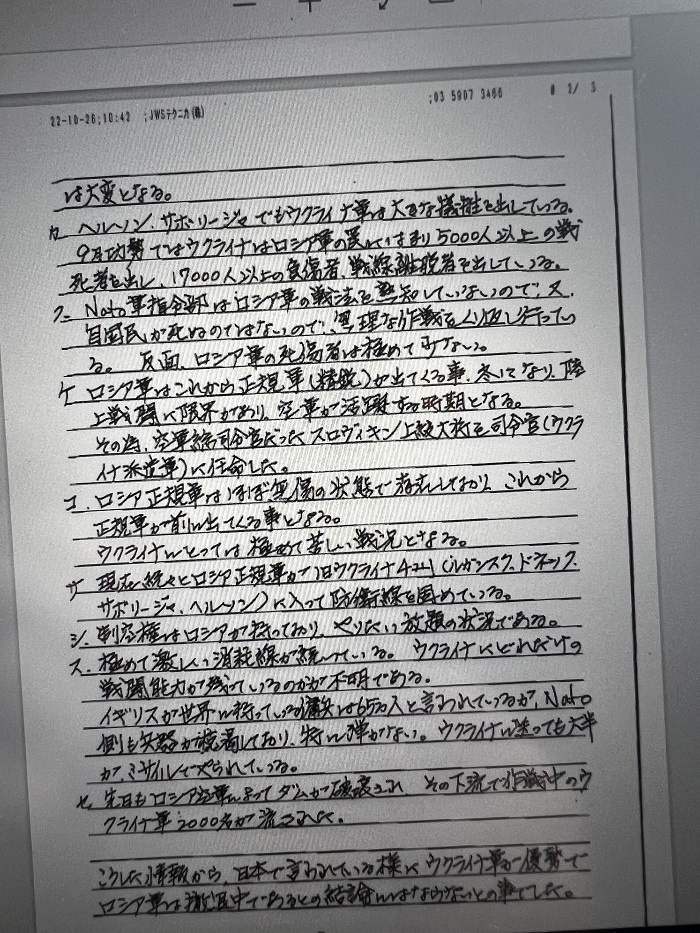 22-10-26;10:42 ;JWSテクニカ(株) ;03 5907 3466 # 2/ 3
は大変となる。
カ ヘルソン、サボリージャでもウクライナ軍は大きな犠牲を出している。
9月功勢ではウクライナはロシア軍の罠にはまり5000人以上の戦
死者を出し、17000人以上の負傷者、戦線離脱者を出している。
ク Nato軍指令部はロシア軍の戦法を熟知していないので、又、
自国民が死ぬのではないので、無理な作戦をくり返し行ってい
る。 反面、ロシア軍の死傷者は極めて少ない。
ケ ロシア軍はこれから正規軍(精鋭)が出てくる事、冬になり、陸
上戦闘に限界があり、空軍が活躍する時期となる。
その為、空軍総司令官だったスロヴィキン上級大将を司令官(ウクラ
イナ派遣軍)に任命した。
コ. ロシア正規軍はほぼ無傷の状態で しており、これから
正規軍が前に出てくる事となる。
ウクライナにとっては極めて苦しい戦況となる。
サ 現在、続々とロシア正規軍が旧ウクライナ4州(ルガンスク、ドネツク、
サボリージャ、ヘルソン)に入って防衛線を固めている。
シ. 制空権はロシアが持っており、やりたい放題の状況である。
ス. 極めて激しい消耗線が続いている。 ウクライナにどれだけの
戦闘能力が残っているのかが不明である。
イギリスが世界に持っている は65万人と言われているが、Nato
側も兵器が枯渇しており、特に弾がない。 ウクライナに送っても大半
が、ミサイルでやられている。
セ 先日もロシア空軍によってダムが破壊され その下流で作戦中のウ
クライナ軍2000名が流された。
こうした情報から、日本で言われている様にウクライナ軍が優勢で
ロシア軍は撤退中であるとの結論にはならないとの事でした。